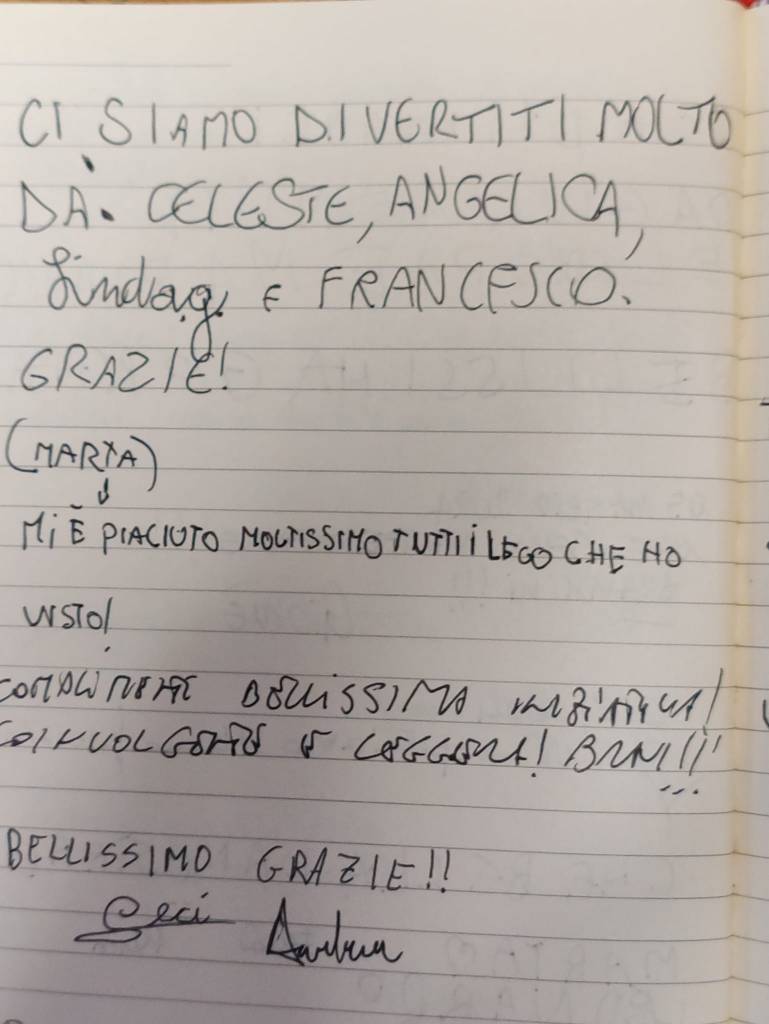 CI SIAMO DIVERTITI MOLTO
DA: CELESTE, ANGELICA,
E FRANCESCO.
GRAZIE!
(MARTA)
↓
MI È PIACIUTO MOLTISSIMO TUTTI I LEGO CHE HO
VISTO!
COMPLIMENTI BELLISSIMA INIZIATIVA!
COINVOLGENTE E LEGGERA! BRAVI!!!
BELLISSIMO GRAZIE!!
Ceci